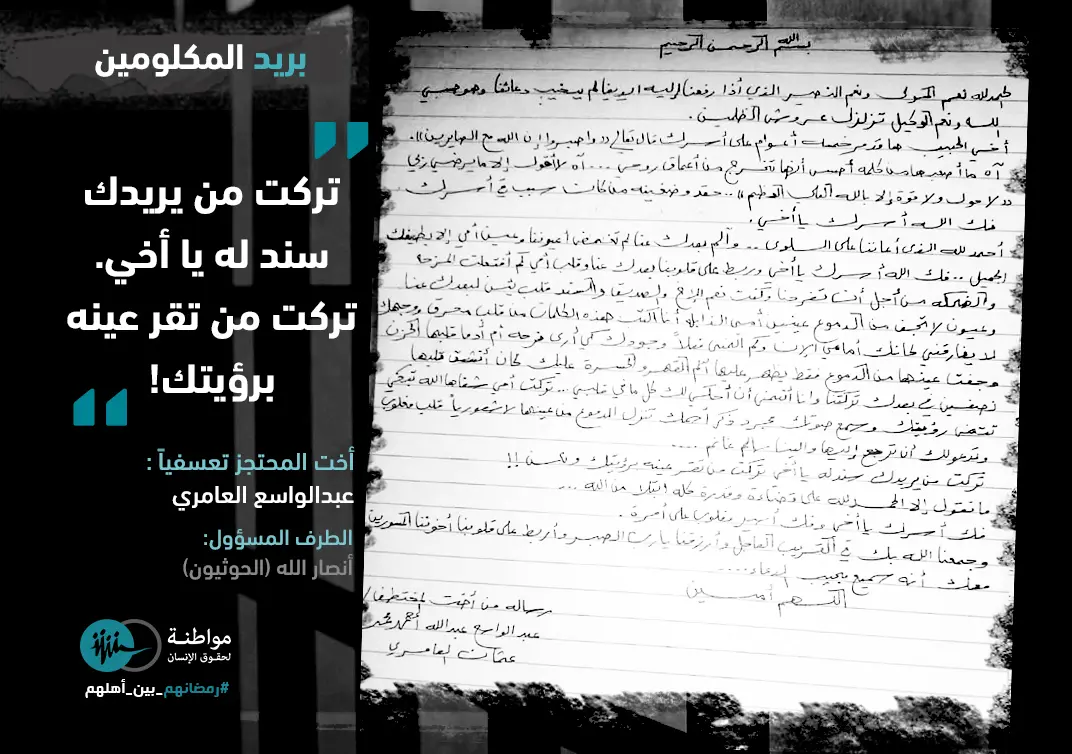 بريد المكلومين
تركت من يريدك
سند له يا أخي.
تركت من تقر عينه
برؤيتك!
أخت المحتجز تعسفياً :
عبدالواسع العامري
الطرف المسؤول:
أنصار الله (الحوثيون)
مواطنة
لحقوق الإنسان
#رمضانهم_بين_أهلهم
بسم الله الرحمن الرحيم
الحمدلله نعم المولى ونعم النصير الذي أذا رفعنا إليه ايدينا لم يخيب دعائنا وهو حسبي
الله ونعم الوكيل تزلزل عروش الظلمين .
أخي الحبيب ها قد مر خمسه أعوام على أسرك قال تعالى ((واصبروا إن الله مع الصابرين)).
آه ما أصعبها من كلمه أحس أنها تخرج من أعماق روحي .... آه لا أقول إلا ما يرضي ربي
((لا حول ولا قوة إلا بالله العلي العظيم)) .. حقد وضغينه من كانت سبب في أسرك
فك الله أسرك يا أخي .
أحمد لله الذي أعاننا على السلوى .. وألم بعدك عنا لم تغمض أعيوننا وعين أمي إلا بطيفك
الجميل .. فك الله أسرك يا أخي وربط على قلوبنا بعدك عنا وقلب أمي كم أفتعلت المزحه
والضحكه من أجل أن تفرحنا وكنت نعم الأخ والصديق والسند قلب يئن لبعدك عنا
وعيون لا تجف من الدموع عينين أمي الذابله أنا اكتب هذه الكلمات من قلب محروق ووجهك
لا يفارقني كانك أمامي الان وكم اتمنى فعلاً وجودك كي أرى فرحه أم أدما قلبها الحزن
وجفت عينها من الدموع فقط يظهر عليها ألم القهر والحسرة عليك كان أنشق قلبها
نصفين في بعدك تركتنا وانا أتمنى أن أحكي لك كل ما في قلبي ... تركت أمي شفاها الله تبكي
تتمنى رؤيتك وسمع صوتك مجرد ذكر أسمك تنزل الدموع من عينها لا شعورياً قلب مغلوب
وتدعولك أن ترجع إليها والينا سالم غانم ....
تركت من يريدك سند له يا أخي تركت من تقر عينه برؤيتك ولكن !!
ما نقول إلا الحمدلله على قضاءه وقدرة كله ابتلا من الله ...
فك أسرك يا أخي وفك أسير مغلوب على أمرة .
وجمعنا الله بك في القريب العاجل وأرزقنا يارب الصبر وأربط على قلوبنا أخوتنا المسورين
معك أنه سميع مجيب الدعاء ....
اللهم أمين
رساله من أخت المختطف /
عبد الواسع عبدالله أحمد محمد
عثمان العامري